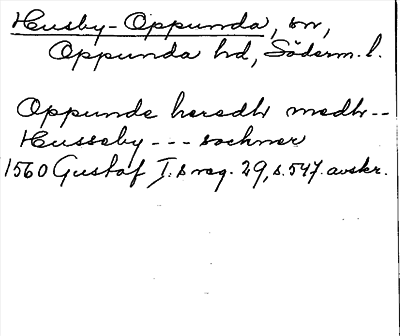 Husby-Oppunda, sn,
Oppunda hd, Söderm. l.
Oppunde heredh medh--
Husseby --- sochner
1560 Gustaf I:s reg. 29, s. 547. avskr.